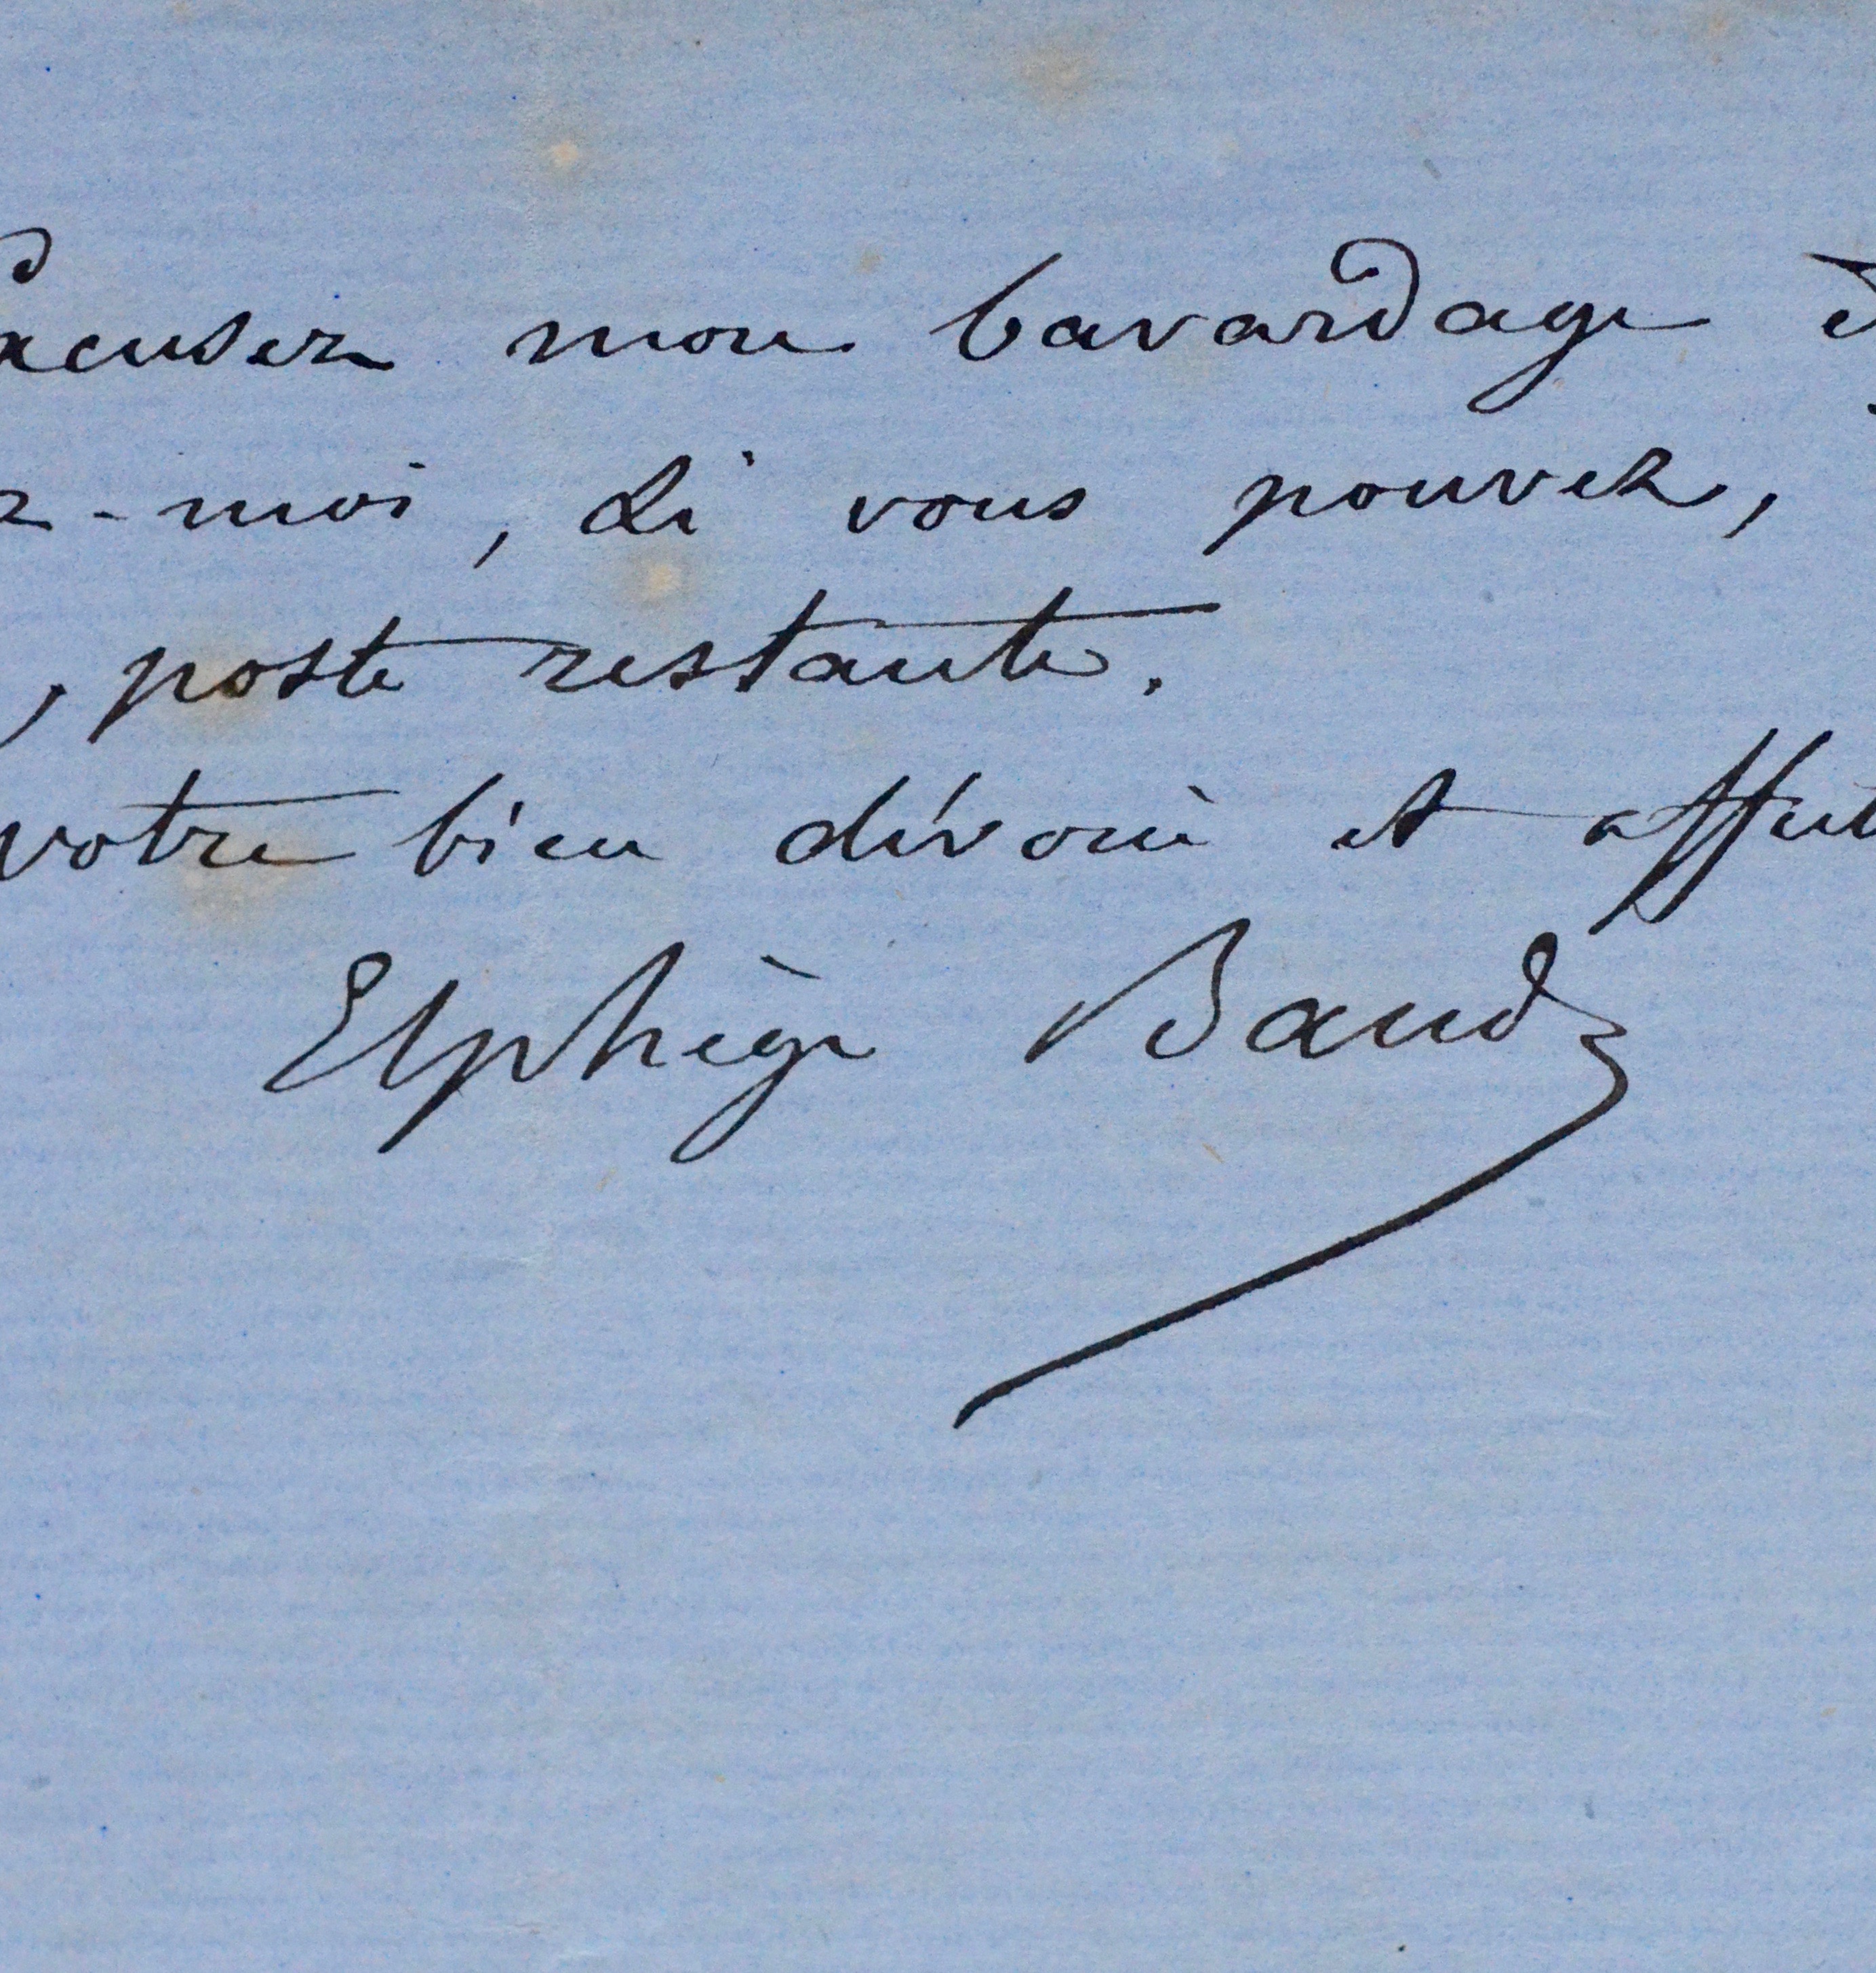 xcusez mon bavardage
z-moi, si vous pouvez,
, poste restante.
votre bien dévoué et affect
Elphège Baud